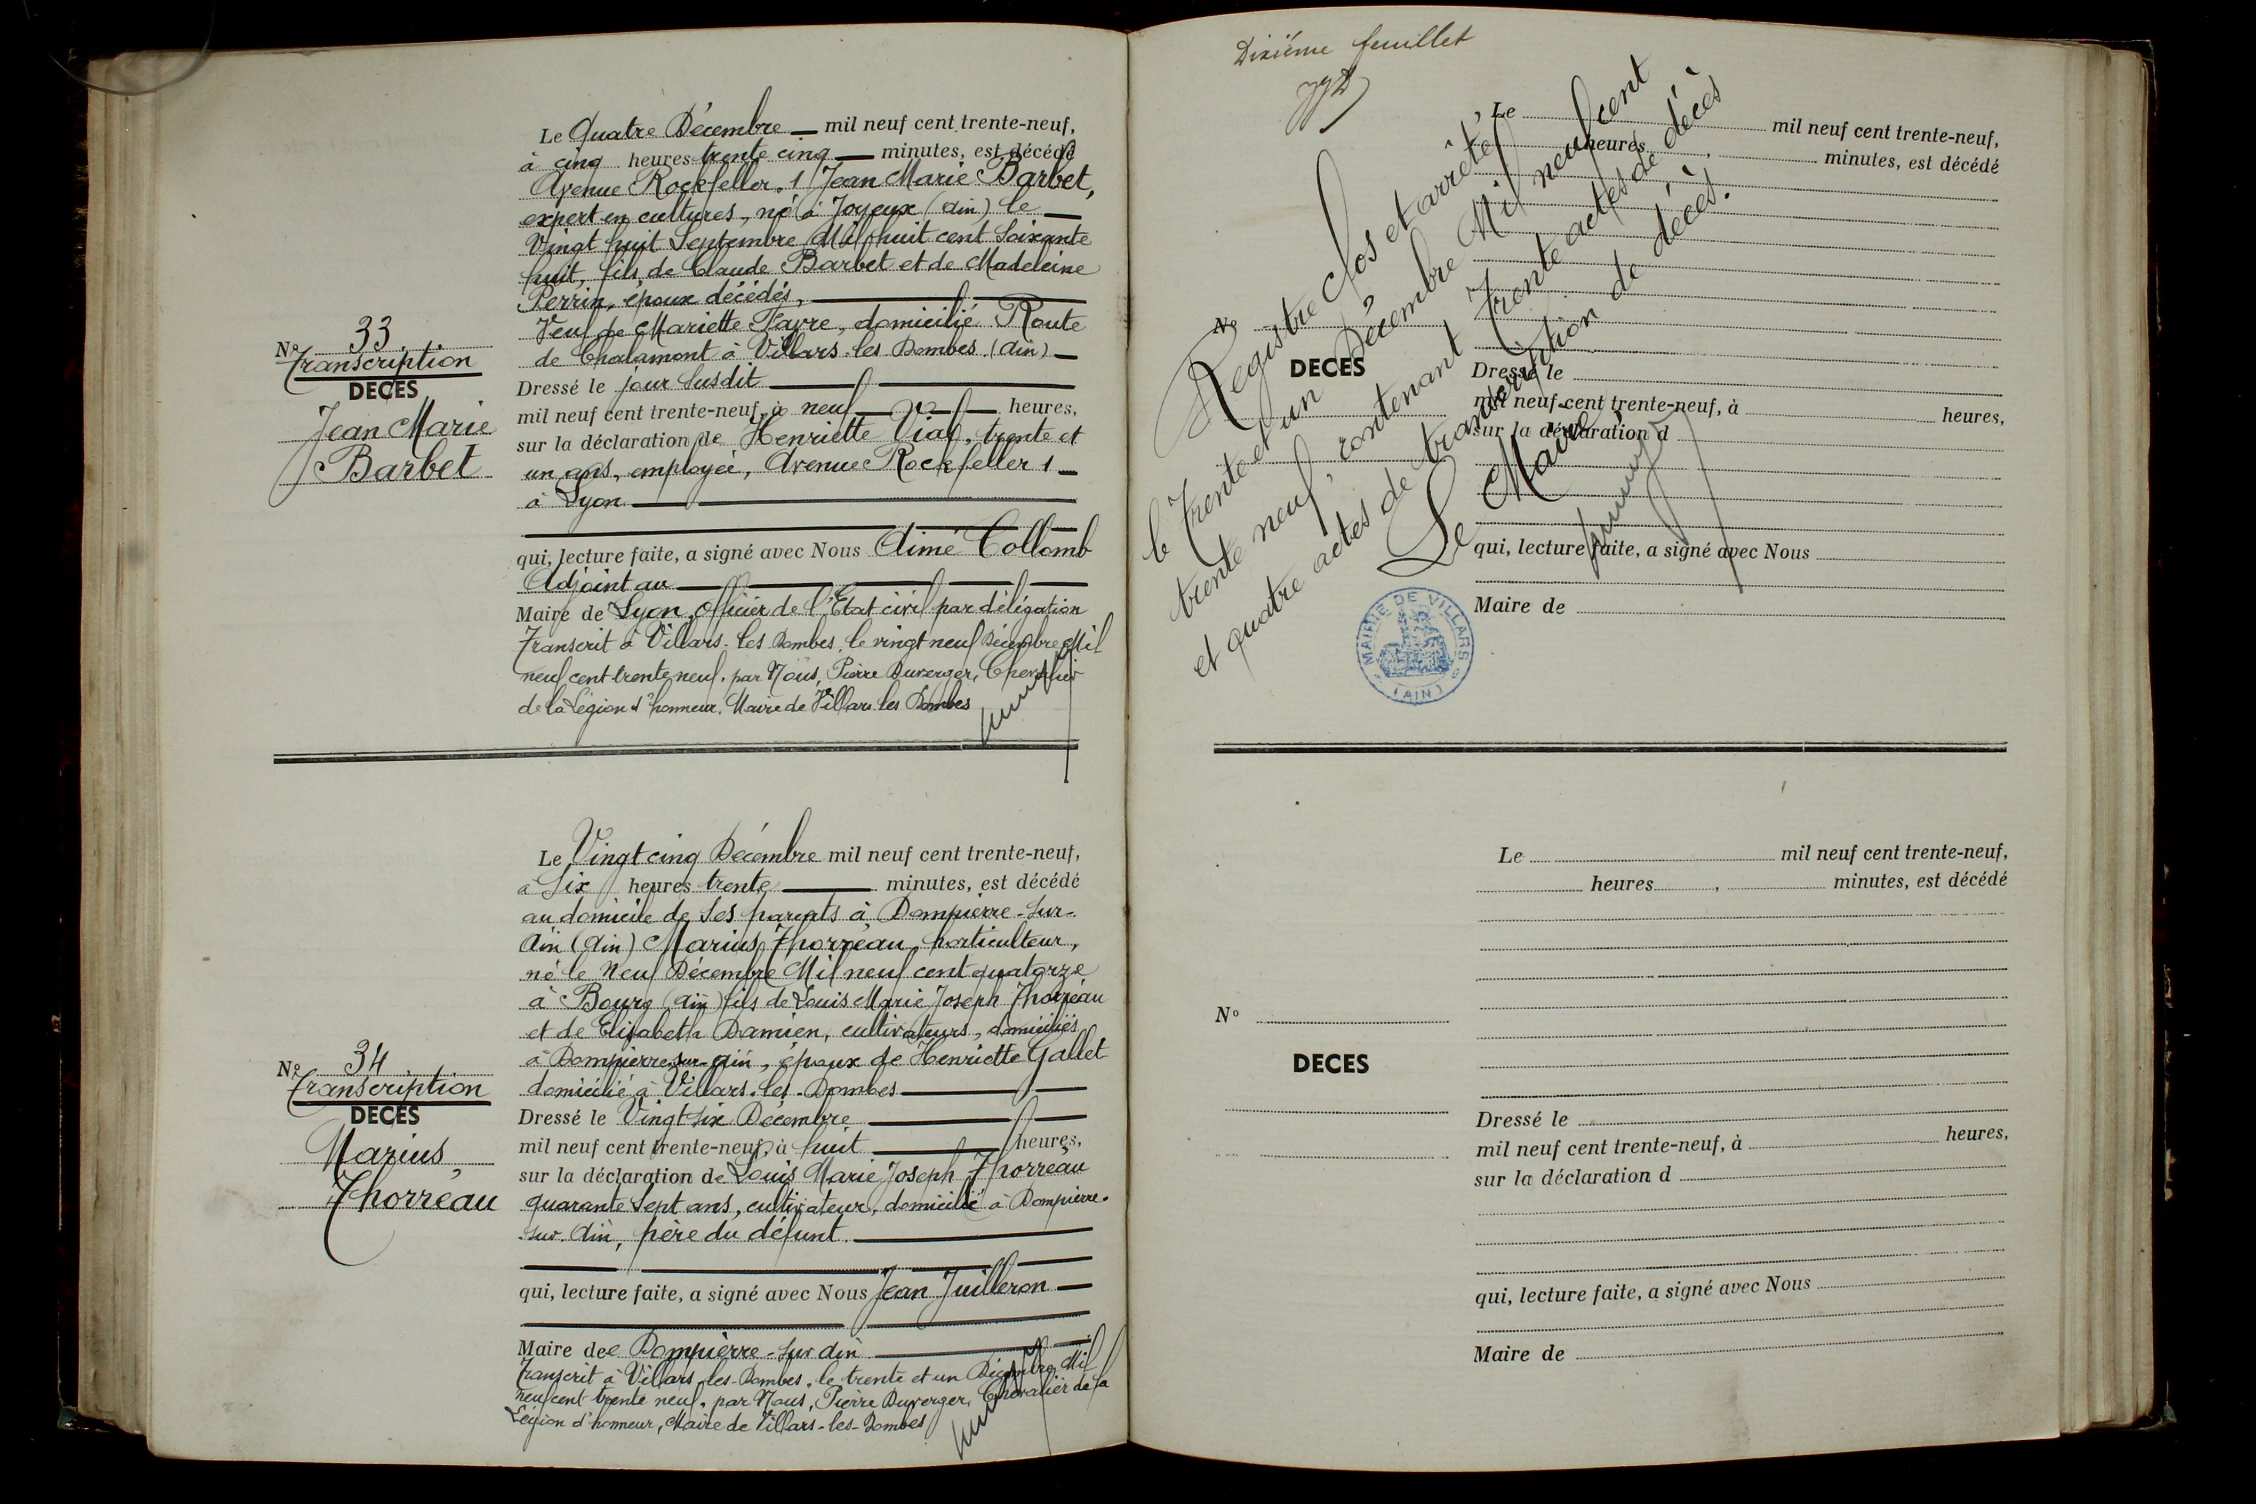 Le Quatre Décembre mil neuf cent trente-neuf,
à cinq heures trente cinq minutes, est décédé
Avenue Rockfeller, 1 Jean Marie Barbet,
expert en cultures, né à Joyeux (Ain) le
Vingt huit Septembre Mil huit cent soixante
huit, fils de Claude Barbet et de Madeleine
Perrin, époux décédés,
Veuf de Mariette Favre, domicilié Route
de Chalamont à Villars-les Dombes (Ain)
Nº 33
Transcription
DECES
Jean Marie
Barbet
Dressé le jour susdit
mil neuf cent trente-neuf, à neuf heures,
sur la déclaration de Henriette Vial, trente et
un ans, employée, Avenue Rockfeller 1
à Lyon
qui, lecture faite, a signé avec Nous Aimé Collomb
Adjoint au
Maire de Lyon, officier de l'Etat civil par délégation
Transcrit à Villars-les Dombes, le vingt neuf Décembre Mil
neuf cent trente neuf, par Nous, Pierre Duverger, Chevalier
de la Légion d'honneur, Maire de Villars les Dombes
Le Vingt cinq Décembre mil neuf cent trente-neuf,
à Six heures trente minutes, est décédé
au domicile de ses parents à Dompierre-sur-
Ain (Ain) Marius Thorréau, horticulteur,
né le Neuf Décembre Mil neuf cent quatorze
à Bourg (Ain) fils de Louis Marie Joseph Thorréau
et de Elisabeth Damien, cultivateurs, domiciliés
à Dompierre-sur-Ain, époux de Henriette Gallet
domicilié à Villars-les-Dombes
Nº 34
Transcription
DECES
Marius,
Thorréau
Dressé le Vingt six Décembre
mil neuf cent trente-neuf, à huit heures,
sur la déclaration de Louis Marie Joseph Thorréau
quarante sept ans, cultivateur, domicilié à Dompierre-
sur-Ain, père du défunt.
qui, lecture faite, a signé avec Nous Jean Juilleron
Maire de Dompierre-sur Ain
Transcrit à Villars-les-Dombes, le trente et un Décembre Mil
neuf cent trente neuf, par Nous, Pierre Duverger, Chevalier de la
Légion d'honneur, Maire de Villars-les-Dombes
Dixième feuillet
Le mil neuf cent trente-neuf,
heures, minutes, est décédé
Nº
DECES
Dressé le
mil neuf cent trente-neuf, à heures,
sur la déclaration d
qui, lecture faite, a signé avec Nous
Maire de
Registre clos et arrêté,
le Trente et un Décembre Mil neuf cent
trente neuf, contenant Trente actes de décès
et quatre actes de transcription de décès.
Le Maire,
MAIRIE DE VILLARS
(AIN)
Le mil neuf cent trente-neuf,
heures, minutes, est décédé
Nº
DECES
Dressé le
mil neuf cent trente-neuf, à heures,
sur la déclaration d
qui, lecture faite, a signé avec Nous
Maire de